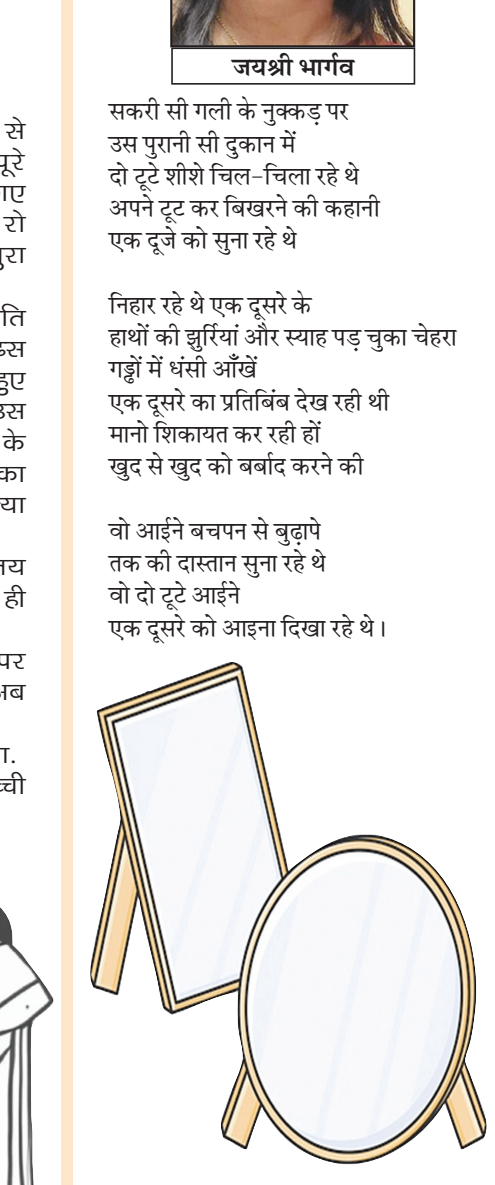 से
रो
ति
हुए
के
का
ही
पर
जयश्री भार्गव
सकरी सी गली के नुक्कड़ पर
उस पुरानी सी दुकान में
दो टूटे शीशे चिल-चिला रहे थे
अपने टूट कर बिखरने की कहानी
एक दूजे को सुना रहे थे
निहार रहे थे एक दूसरे के
हाथों की झुर्रियां और स्याह पड़ चुका चेहरा
गड्ढों में धंसी आँखें
एक दूसरे का प्रतिबिंब देख रही थी
मानो शिकायत कर रही हों
खुद से खुद को बर्बाद करने की
वो आईने बचपन से बुढ़ापे
तक की दास्तान सुना रहे थे
वो दो टूटे आईने
एक दूसरे को आइना दिखा रहे थे।